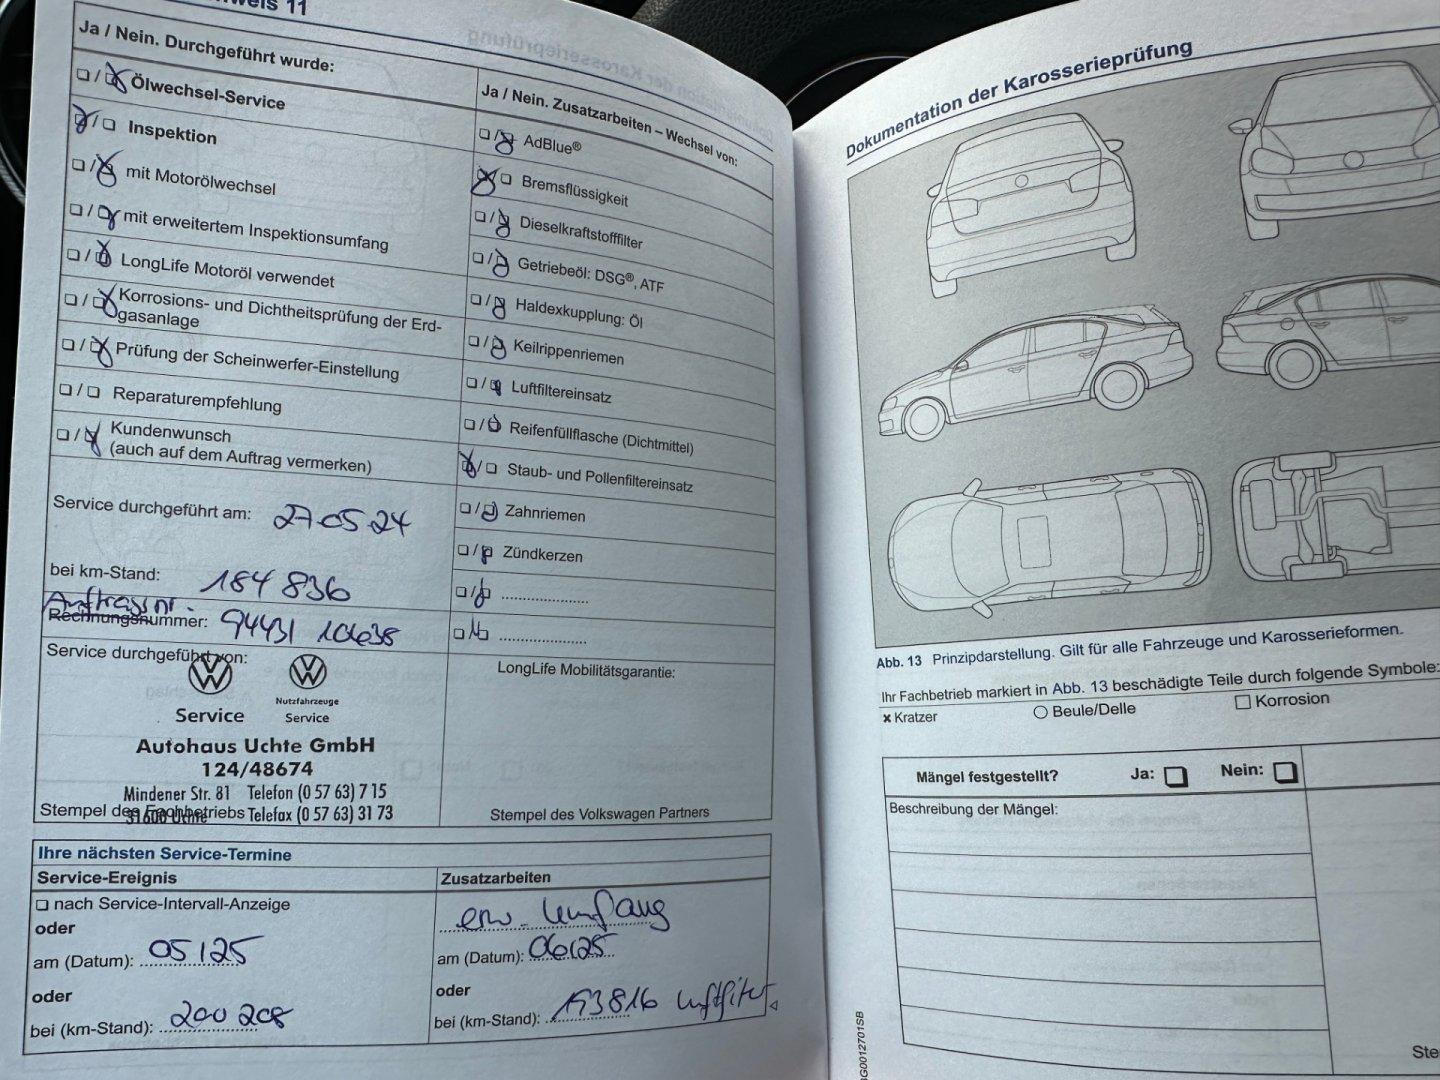 11
Ja / Nein. Durchgeführt wurde:
Ölwechsel-Service
Inspektion
mit Motorölwechsel
mit erweitertem Inspektionsumfang
LongLife Motoröl verwendet
Korrosions- und Dichtheitsprüfung der Erd-
gasanlage
Prüfung der Scheinwerfer-Einstellung
Reparaturempfehlung
Kundenwunsch
(auch auf dem Auftrag vermerken)
Service durchgeführt am: 27.05.24
bei km-Stand: 184 836
Auftragsnr.
Rechnungsnummer: 94431 106638
Service durchgeführt von:
Service
Nutzfahrzeuge
Service
Autohaus Uchte GmbH
124/48674
Mindener Str. 81 Telefon (0 57 63) 7 15
31600 Uchte Telefax (0 57 63) 31 73
Stempel des Fachbetriebs
Ja / Nein. Zusatzarbeiten – Wechsel von:
AdBlue®
Bremsflüssigkeit
Dieselkraftstofffilter
Getriebeöl: DSG®, ATF
Haldexkupplung: Öl
Keilrippenriemen
Luftfiltereinsatz
Reifenfüllflasche (Dichtmittel)
Staub- und Pollenfiltereinsatz
Zahnriemen
Zündkerzen
LongLife Mobilitätsgarantie:
Stempel des Volkswagen Partners
Ihre nächsten Service-Termine
Service-Ereignis
nach Service-Intervall-Anzeige
oder
am (Datum): 05/25
oder
bei (km-Stand): 200 208
Zusatzarbeiten
erw. Umfang
am (Datum): 06/25
oder
bei (km-Stand): 193816 Luftfilter
Dokumentation der Karosserieprüfung
Abb. 13 Prinzipdarstellung. Gilt für alle Fahrzeuge und Karosserieformen.
Ihr Fachbetrieb markiert in Abb. 13 beschädigte Teile durch folgende Symbole:
× Kratzer
Beule/Delle
Korrosion
Mängel festgestellt? Ja: Nein:
Beschreibung der Mängel: